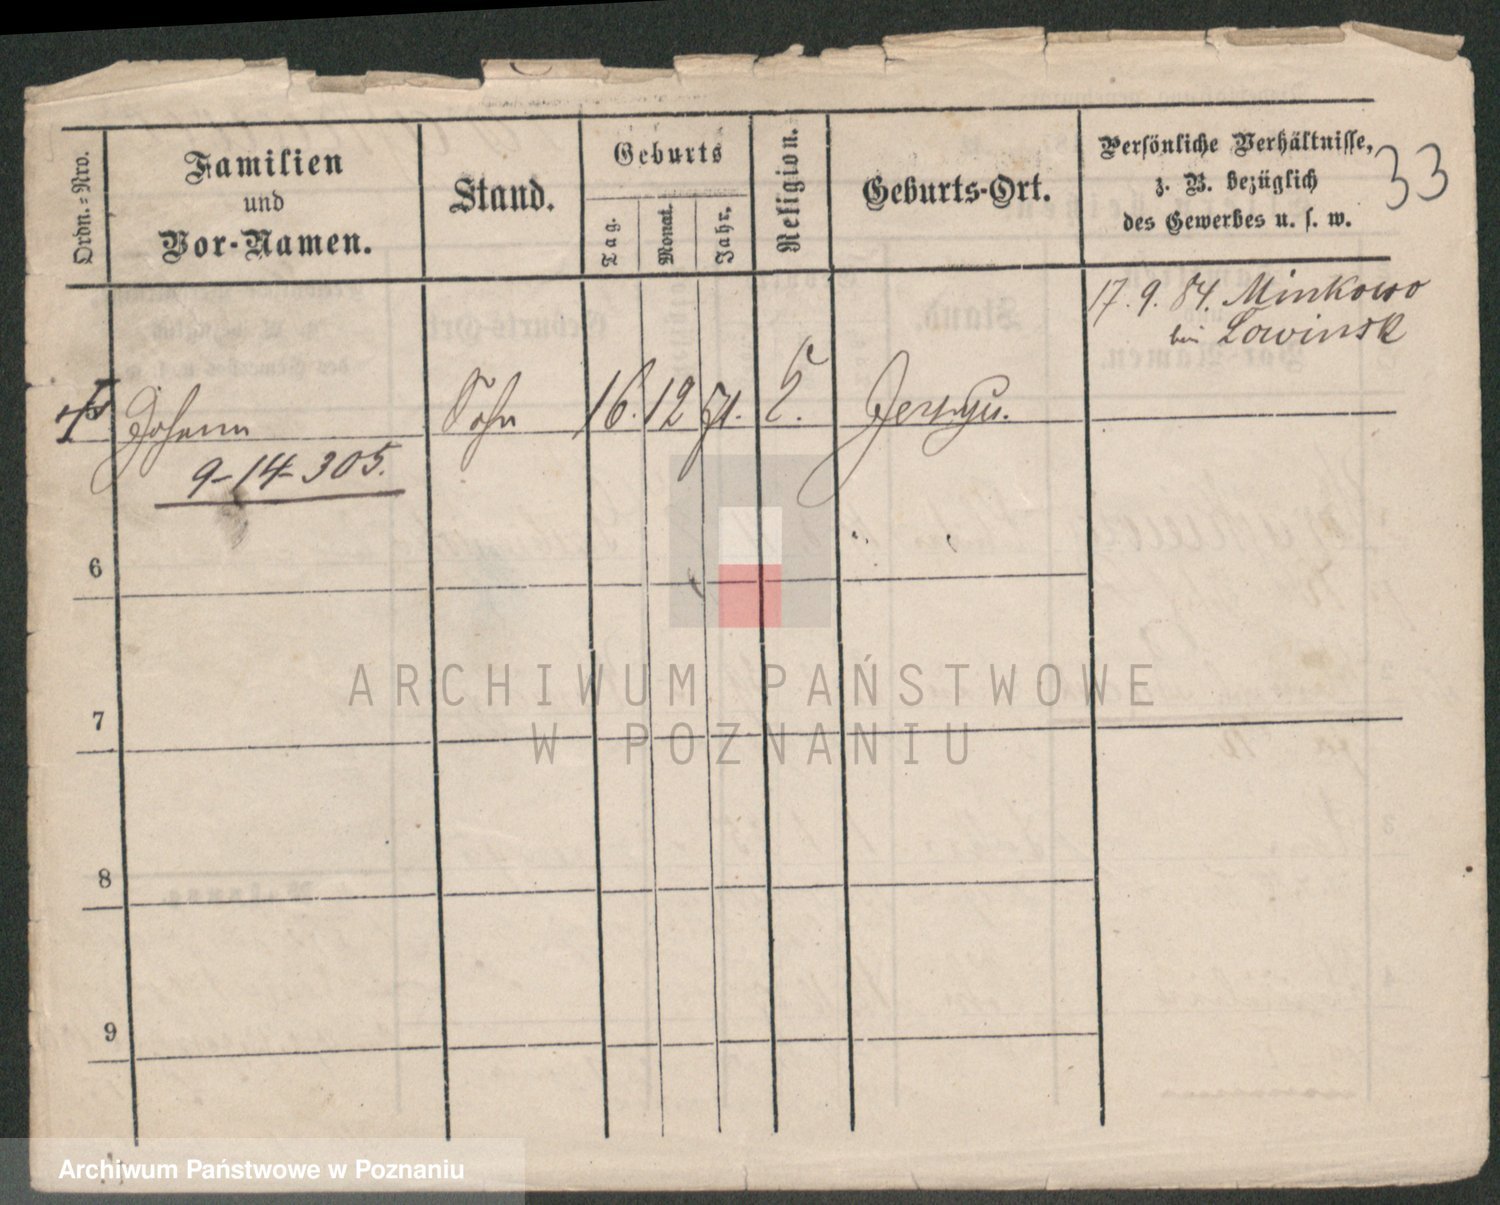 Ordn.-Nro.
Familien
und
Vor-Namen.
Stand.
Geburts
Tag.
Monat.
Jahr.
Religion.
Geburts-Ort.
Persönliche Verhältnisse,
z. B. bezüglich
des Gewerbes u. s. w.
33
17. 9. 84. Minkowo
bei Lowinsk
Johann
Sohn
16.
12
71.
9-14-305.
6
7
8
9
ARCHIWUM PAŃSTWOWE
W POZNANIU
Archiwum Państwowe w Poznaniu